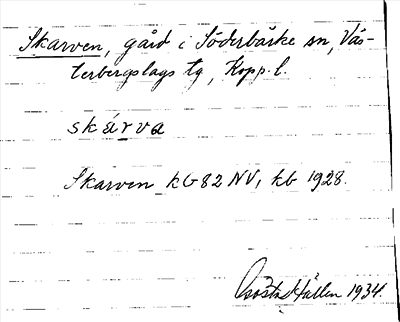 Skarven, gård i Söderbärke sn, Väs-
terbergslags tg, Kopp. l.
skárva
Skarven kG82 NV, kb 1928.
Gösta Hallén 1934.